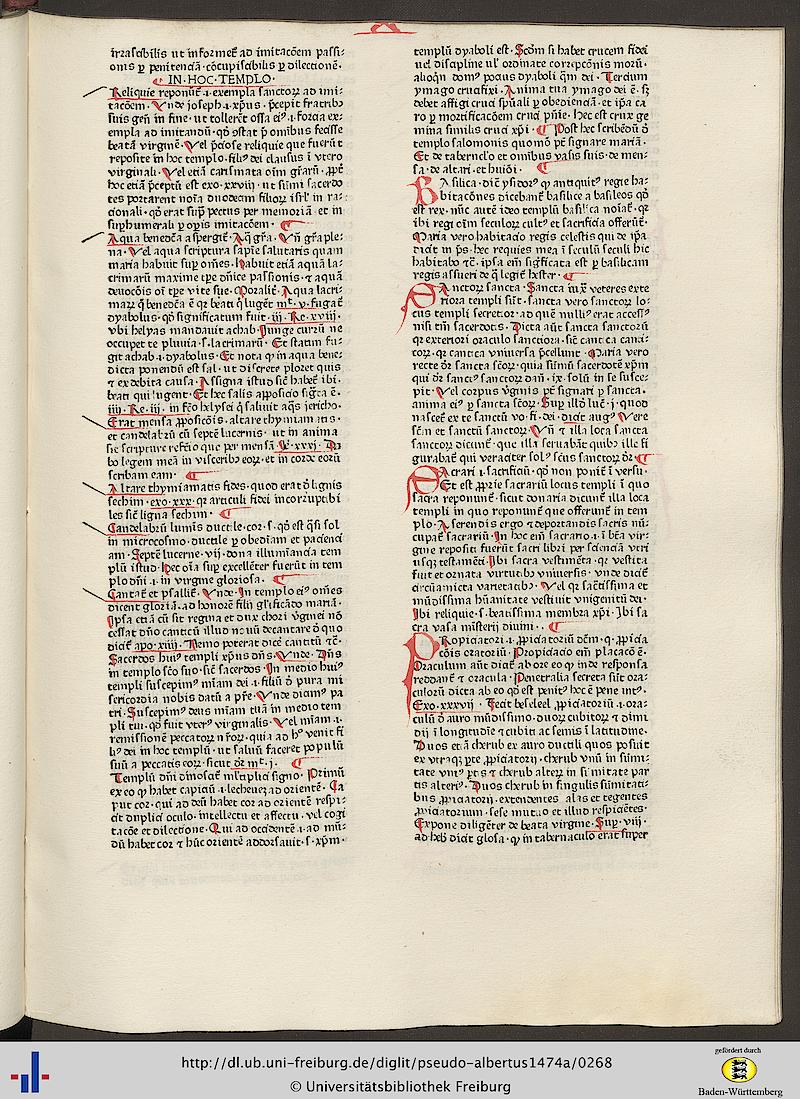 X
irrascibilis ut informet̄ ad imitacōem passi⸗
onis ꝑ penitenciā· cōcupiscibilis ꝑ dilectionē·
IN·HOC·TEMPLO·
Reliquie reponūt̄·i·exempla sanctoꝝ ad imi⸗
tacōem· Vnde ioseph·i·xp̄us· p̄cepit fratribꝫ
suis gen̄ in fine· ut tollerēt ossa eiꝰ·i·forcia ex⸗
empla ad imitandū· qd̓ ꝯstat p̄ omnibus fecisse
beatā virginē· Vel p̄ciose reliquie que fuer̄t
reposite in hoc templo· filiꝰ dei clausus ī vtero
virginali· Vel etiā carismata oīm gr̄arū· ꝓpt̄
hoc etiā p̄ceptū est exo·xxviij· ut sūmi sacerdo
tes portarent noīa duodecim filioꝝ isrl̄ in ra⸗
cionali· qd̓ erat sup̄ pectus per memoriā· et in
suꝑhumerali ꝑ oꝑis imitacōem·
Aqua benedc̄a aspergit̄· Aq̄ gr̄a· Vn̄ gr̄a ple⸗
na· Vel aqua scriptura sapīe salutaris quam
maria habuit suꝑ om̄es· Habuit etiā aquā la⸗
crimarū maxime tꝑe dn̄ice passionis· ⁊ aquā
deuocōis oī tꝑe vite sue· Moralit̄· Aqua lacri⸗
maꝝ q̄ benedc̄a ē qꝛ beati q̄ lugēt mt̄·v· fugat̄
dyabolus· qd̓ significatum fuit·iij·Re·xviij·
vbi helyas mandauit achab· Iunge currū ne
occupet te pluuia·s·lacrimarū· Et statim fu⸗
git achab·i·dyabolus· Et nota ꝙ in aqua bene⸗
dicta ponendū est sal· ut discrete ploret quis
⁊ ex debita causa· Assigna istud sic̄ habet̄ ibi·
beati qui lugent· Et hec salis apposicio sig̃ta ē·
iiij·Re·ij· in fc̄o helysei q̄ saluit aq̄s iericho·
Erat mensa ꝓposicōis· altare thymiamatis·
et candelabrū cū septē lucernis· ut in anima
sit scripture refc̄io que per mensā· Ie·xxxj· Da
bo legem meā in visceribꝫ eoꝝ· et in corde eorū
scribam eam·
Altare thymiamatis fides· quod erat d̓ lignis
sechim· exo·xxx· qꝛ articuli fidei incorruptibi
les sic̄ ligna sechim·
Candelabrū lumīs ductile· cor·s· qd̓ est q̄si sol
in microcosmo· ductile ꝑ obediam et pacienci
am· Septē lucerne·vij·dona illumīancia tem
plū istud· Hec oīa suꝑ excellēter fuerūt in tem
plo dn̄i·i· in virgine gloriosa·
Cantat̄ et psallit̄· Vnde· In templo eiꝰ om̄es
dicent gloriā· ad honorē filij gl̓ificādo mariā·
Ipsa ctiā cū sit regina et dux chori v̓ginei nō
cessat dn̄o canticū illud nouū decantare d̓ quo
dicit̄ apo·xiiij· Nemo poterat dicē canticū ⁊c̄·
Sacerdos huiꝰ templi xp̄us dn̄s· Vnde· Dn̄s
in templo sc̄o suo· sic̄ sacerdos· In medio huiꝰ
templi suscepimꝰ mīam dei·i·filiū d̓ pura mi
sericordia nobis datū a pr̄e· Vnde diamꝰ pa
tri· Suscepimꝰ deus mīam tuā in medio tem
pli tui· qd̓ fuit vterꝰ virginalis· Vel mīam·i·
remissionē peccatoꝝ nr̄oꝝ· quia ad hꝰ venit fi
liꝰ dei in hoc templū· ut saluū faceret populū
suū a peccatis eoꝝ· sicut dr̄ mt̄·j·
Templū dn̄i dinoscit̄ mltiplici signo· Primū
ex eo ꝙ habet capiciū·i·lecheuez ad orientē· Ca
put cor· qui ad deū habet cor ad orientē respi⸗
cit duplici oculo· intellectu et affectu· vel cogi
tacōe et dilectione· Qui ad occidentē·i·ad mū⸗
dū habet cor ⁊ hūc orientē addorsauit·s·xp̄m·
templū dyaboli est· Scd̓m si habet crucem fidei
uel disapline ul̓ ordinate correpcōnis morū·
alioq̄n domꝰ pocius dyaboli q̄m dei· Tercium
ymago crucifixi· Anima tua ymago dei ē· sꝫ
debet affigi cruci spūali ꝑ obedienciā· et ip̄a ca
ro ꝑ mortificacōem cruci pn̄ie· hec est crux ge
mina similis cruci xp̄i· Post hec scribēdū d̓
templo salomonis quomō pt̄ signare mariā·
Et de tabernc̄lo et omibus vasis suis de men⸗
sa· de altari· et huiōi·
Basilica· dic̄ ysidorꝰ ꝙ antiquitꝰ regie ha⸗
bitacōnes dicebant̄ basilice a basileos qd̓
est rex· nūc autē ideo templū basilica noiat̄· qꝛ
ibi regi oīm seculoꝝ cultꝰ et sacrificia offerūt̄·
Maria vero habitacio regis celestis qui de ip̄a
dicit in ps̄· hec requies mea ī seculū seculi hic
habitabo ⁊c̄· ipsa em̄ sig̃ficata est ꝑ basilicam
regis assueri de q̄ legit̄ hester·
Sanctor̄ sancta· Sancta iux̄ veteres exte
riora templi sūt· sancta vero sanctoꝝ lo⸗
cus templi secretior· ad quē nulliꝰ erat accessꝰ
nisi tm̄ sacerdotis· Dicta aūt sancta sanctorū
qꝛ exteriori oraculo sanctiora· sic̄ cantica canti⸗
coꝝ· qꝛ cantica vniuersa p̄cellunt· Maria vero
recte dr̄ sancta sc̄oꝝ· quia sūmū sacerdotē xp̄m
qui dr̄ sanctꝰ sanctoꝝ dan̄·ix· solū in se susce⸗
pit· Vel corpus v̓ginis pt̄ signari ꝑ sancta·
anima eiꝰ ꝑ sancta sc̄oꝝ· Suꝑ illd̓ luc̄·j· quod
nascet̄ ex te sanctū vo·fi·dei· dicit augꝰ Vere
sc̄m et sanctū sanctoꝝ· Vn̄ ⁊ illa loca sancta
sanctoꝝ dicunt̄· que illa seruabāt quibꝫ ille fi
gurabat̄ qui veraciter solꝰ sc̄us sanctoꝝ dr̄
Sacrari·i·sacrificiū· qd̓ non ponit̄ ī versu·
Et est ꝓprie sacrariū locus templi ī quo
sacra reponunt̄· sicut donaria dicunt̄ illa loca
templi in quo reponunt̄ que offerunt̄ in tem
plo· A ferendis ergo ⁊ deportandis sacris nū⸗
cupat̄ sacrariū· In hoc em̄ sacrario·i·bt̄a vir⸗
gine repositi fuer̄t sacri libri per scienciā vtri
usqꝫ testamēti· Ibi sacra vestimēta· qꝛ vestita
fuit et ornata virtutibꝫ vniuersis· vnde dicit̄
circūamicta varietacibꝫ· Vel qꝛ sāctissima et
mūdissima hūanitate vestiuit vnigenitū dei·
Ibi reliquie·s·beatissima membra xp̄i· Ibi sa
cra vasa misterij diuini·
Propiciatori·i·ꝓpiciatoriū dc̄m·q̄·ꝓpicia
cōis oratoriū· Propiciacio em̄ placacō ē·
Oraculum aūt dicit̄ ab ore eo ꝙ inde responsa
reddant̄ ⁊ oracula· Penetralia secreta sūt ora⸗
culorū dicta ab eo qd̓ est penitꝰ hoc ē pene intꝰ·
Exo·xxxvij· Fecit beseleel ꝓpiciatoriū·i·ora⸗
culū d̓ auro mūdissimo· duoꝝ cubitoꝝ ⁊ dimi
dij ī longitudīe ⁊ cubit ac semis ī latitudine·
Duos etiā cherub ex auro ductili quos posuit
ex vtraqꝫ ꝑte ꝓpiciatorij· cherub vnū in sūmi⸗
tate vniꝰ ꝑtis ⁊ cherub alteꝝ in sūmitate par
tis alteriꝰ· Duos cherub in singulis sūmitati⸗
bus ꝓpiciatorij· extendentes alas et tegentes
ꝓpiciatorium· sese mutuo et illud respiciētes·
Expone diligēter de beata virgine· Suꝑ·viij·
ad heb̓ dicit glosa· ꝙ in tabernaculo erat super
http://dl.ub.uni-freiburg.de/diglit/pseudo-albertus1474a/0268
© Universitätsbibliothek Freiburg
gefördert durch
Baden-Württemberg